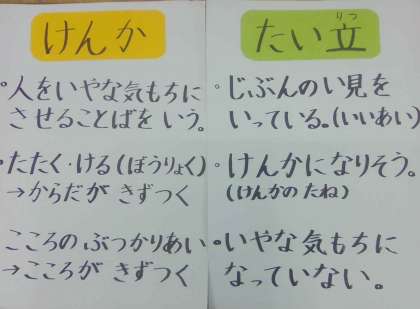 けんか
・人をいやな気もちに
させることばをいう。
・たたく・ける(ぼうりょく)
→からだが きずつく
・こころの ぶつかりあい
→こころが きずつく
たい立
りつ
・じぶんのい見を
いっている。(いいあい)
・けんかになりそう。
(けんかの たね)
・いやな気もちに
なっていない。